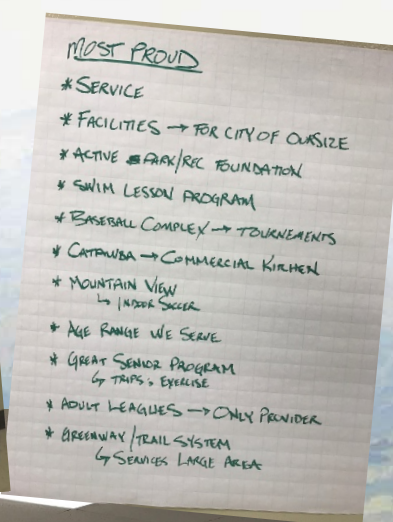 MOST PROUD
* SERVICE
* FACILITIES → FOR CITY OF OUR SIZE
* ACTIVE PARK/REC FOUNDATION
* SWIM LESSON PROGRAM
* BASEBALL COMPLEX → TOURNEMENTS
* CATAWBA → COMMERCIAL KITCHEN
* MOUNTAIN VIEW
↳ INDOOR SOCCER
* AGE RANGE WE SERVE
* GREAT SENIOR PROGRAM
↳ TRIPS & EXERCISE
* ADULT LEAGUES → ONLY PROVIDER
* GREENWAY/TRAIL SYSTEM
↳ SERVICES LARGE AREA